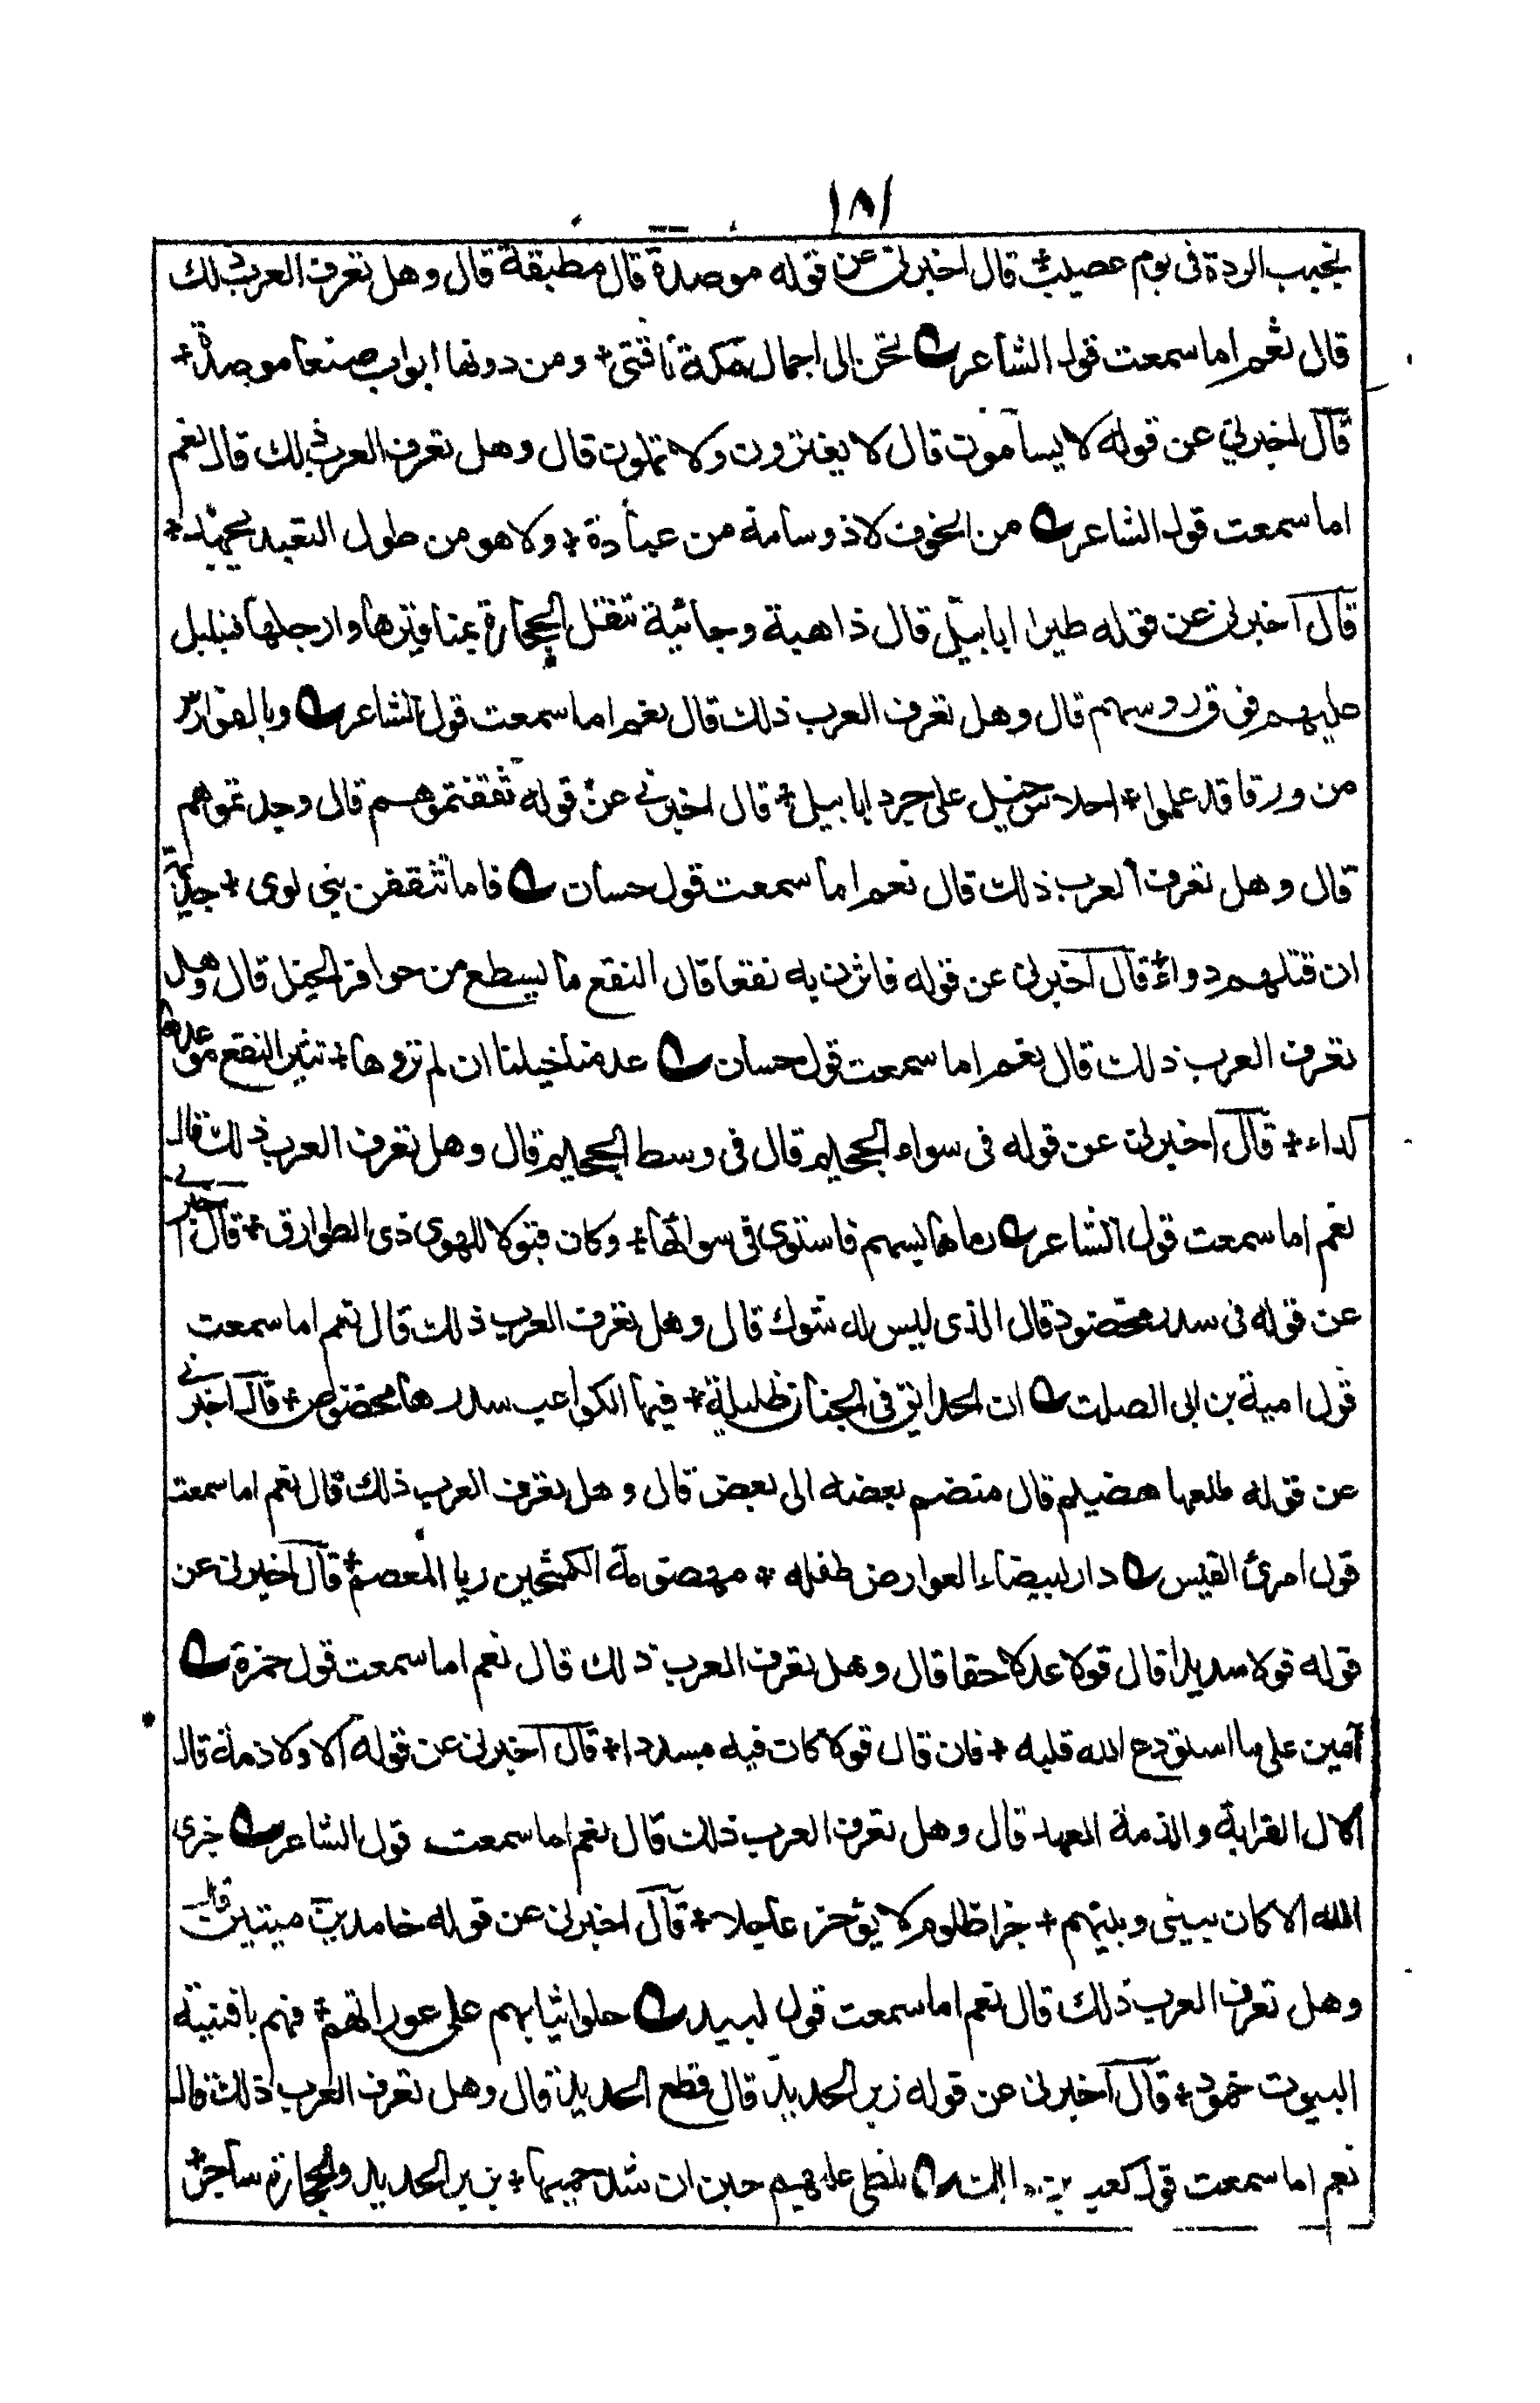 ١٨١
بجنب الردة فى يوم عصيب قال اخبرنى عن قوله موصدة قال مطبقة قال وهل تعرف العرب ذلك
قال نعم اما سمعت قول الشاعر تحن الى اجمال مكة ناقتى ومن دونها ابواب صنعا موصدة
قال اخبرنى عن قوله لا يسأمون قال لا يفترون ولا يملون قال وهل تعرف العرب ذلك قال نعم
اما سمعت قول الشاعر من الخوف لا ذو سامة من عبادة ولا هو من طول التعبد يجهد
قال اخبرنى عن قوله طيرا ابابيل قال ذاهبة وجائية تنقل الحجارة بمناقيرها وارجلها فتبلبل
عليهم فوق رؤسهم قال وهل تعرف العرب ذلك قال نعم اما سمعت قول الشاعر وبالفوارس
من ورقا قد علموا احلاس خيل على جرد ابابيل قال اخبرنى عن قوله ثقفتموهم قال وجدتموهم
قال وهل تعرف العرب ذلك قال نعم اما سمعت قول حسان فاما تثقفن بنى لوى جذيمة
ان قتلهم دواء قال اخبرنى عن قوله فاثرن به نقعا قال النقع ما يسطع من حوافر الخيل قال وهل
تعرف العرب ذلك قال نعم اما سمعت قول حسان عدمنا خيلنا ان لم تروها تثير النقع موعدها
كداء قال اخبرنى عن قوله فى سواء الجحيم قال فى وسط الجحيم قال وهل تعرف العرب ذلك قال
نعم اما سمعت قول الشاعر رماها بسهم فاستوى فى سوائها وكان قبولا للهوى ذى الطوارق قال اخبرنى
عن قوله فى سدر مخضود قال الذى ليس له شوك قال وهل تعرف العرب ذلك قال نعم اما سمعت
قول امية بن ابى الصلت ان الحدائق فى الجنان ظليلة فيها الكواعب سدرها مخضود قال اخبرنى
عن قوله طلعها هضيم قال منضم بعضه الى بعض قال وهل تعرف العرب ذلك قال نعم اما سمعت
قول امرئ القيس دار لبيضاء العوارض طفله مهضومة الكشحين ريا المعصم قال اخبرنى عن
قوله قولا سديدا قال قولا عدلا حقا قال وهل تعرف العرب ذلك قال نعم اما سمعت قول حمزة
امين على ما استودع الله قلبه فان قال قولا كان فيه مسددا قال اخبرنى عن قوله الا ولا ذمة قال
الال القرابة والذمة العهد قال وهل تعرف العرب ذلك قال نعم اما سمعت قول الشاعر جزى
الله الا كان بينى وبينهم جزا ظلوم لا يؤخر عاجلا قال اخبرنى عن قوله خامدين قال ميتين قال
وهل تعرف العرب ذلك قال نعم اما سمعت قول لبيد حلوا ثيابهم على عوراتهم فهم بافنية
البيوت خمود قال اخبرنى عن قوله زبر الحديد قال قطع الحديد قال وهل تعرف العرب ذلك قال
نعم اما سمعت قول كعب بن تلظى عليهم حين ان شد حميها بزبر الحديد والحجارة ساجر